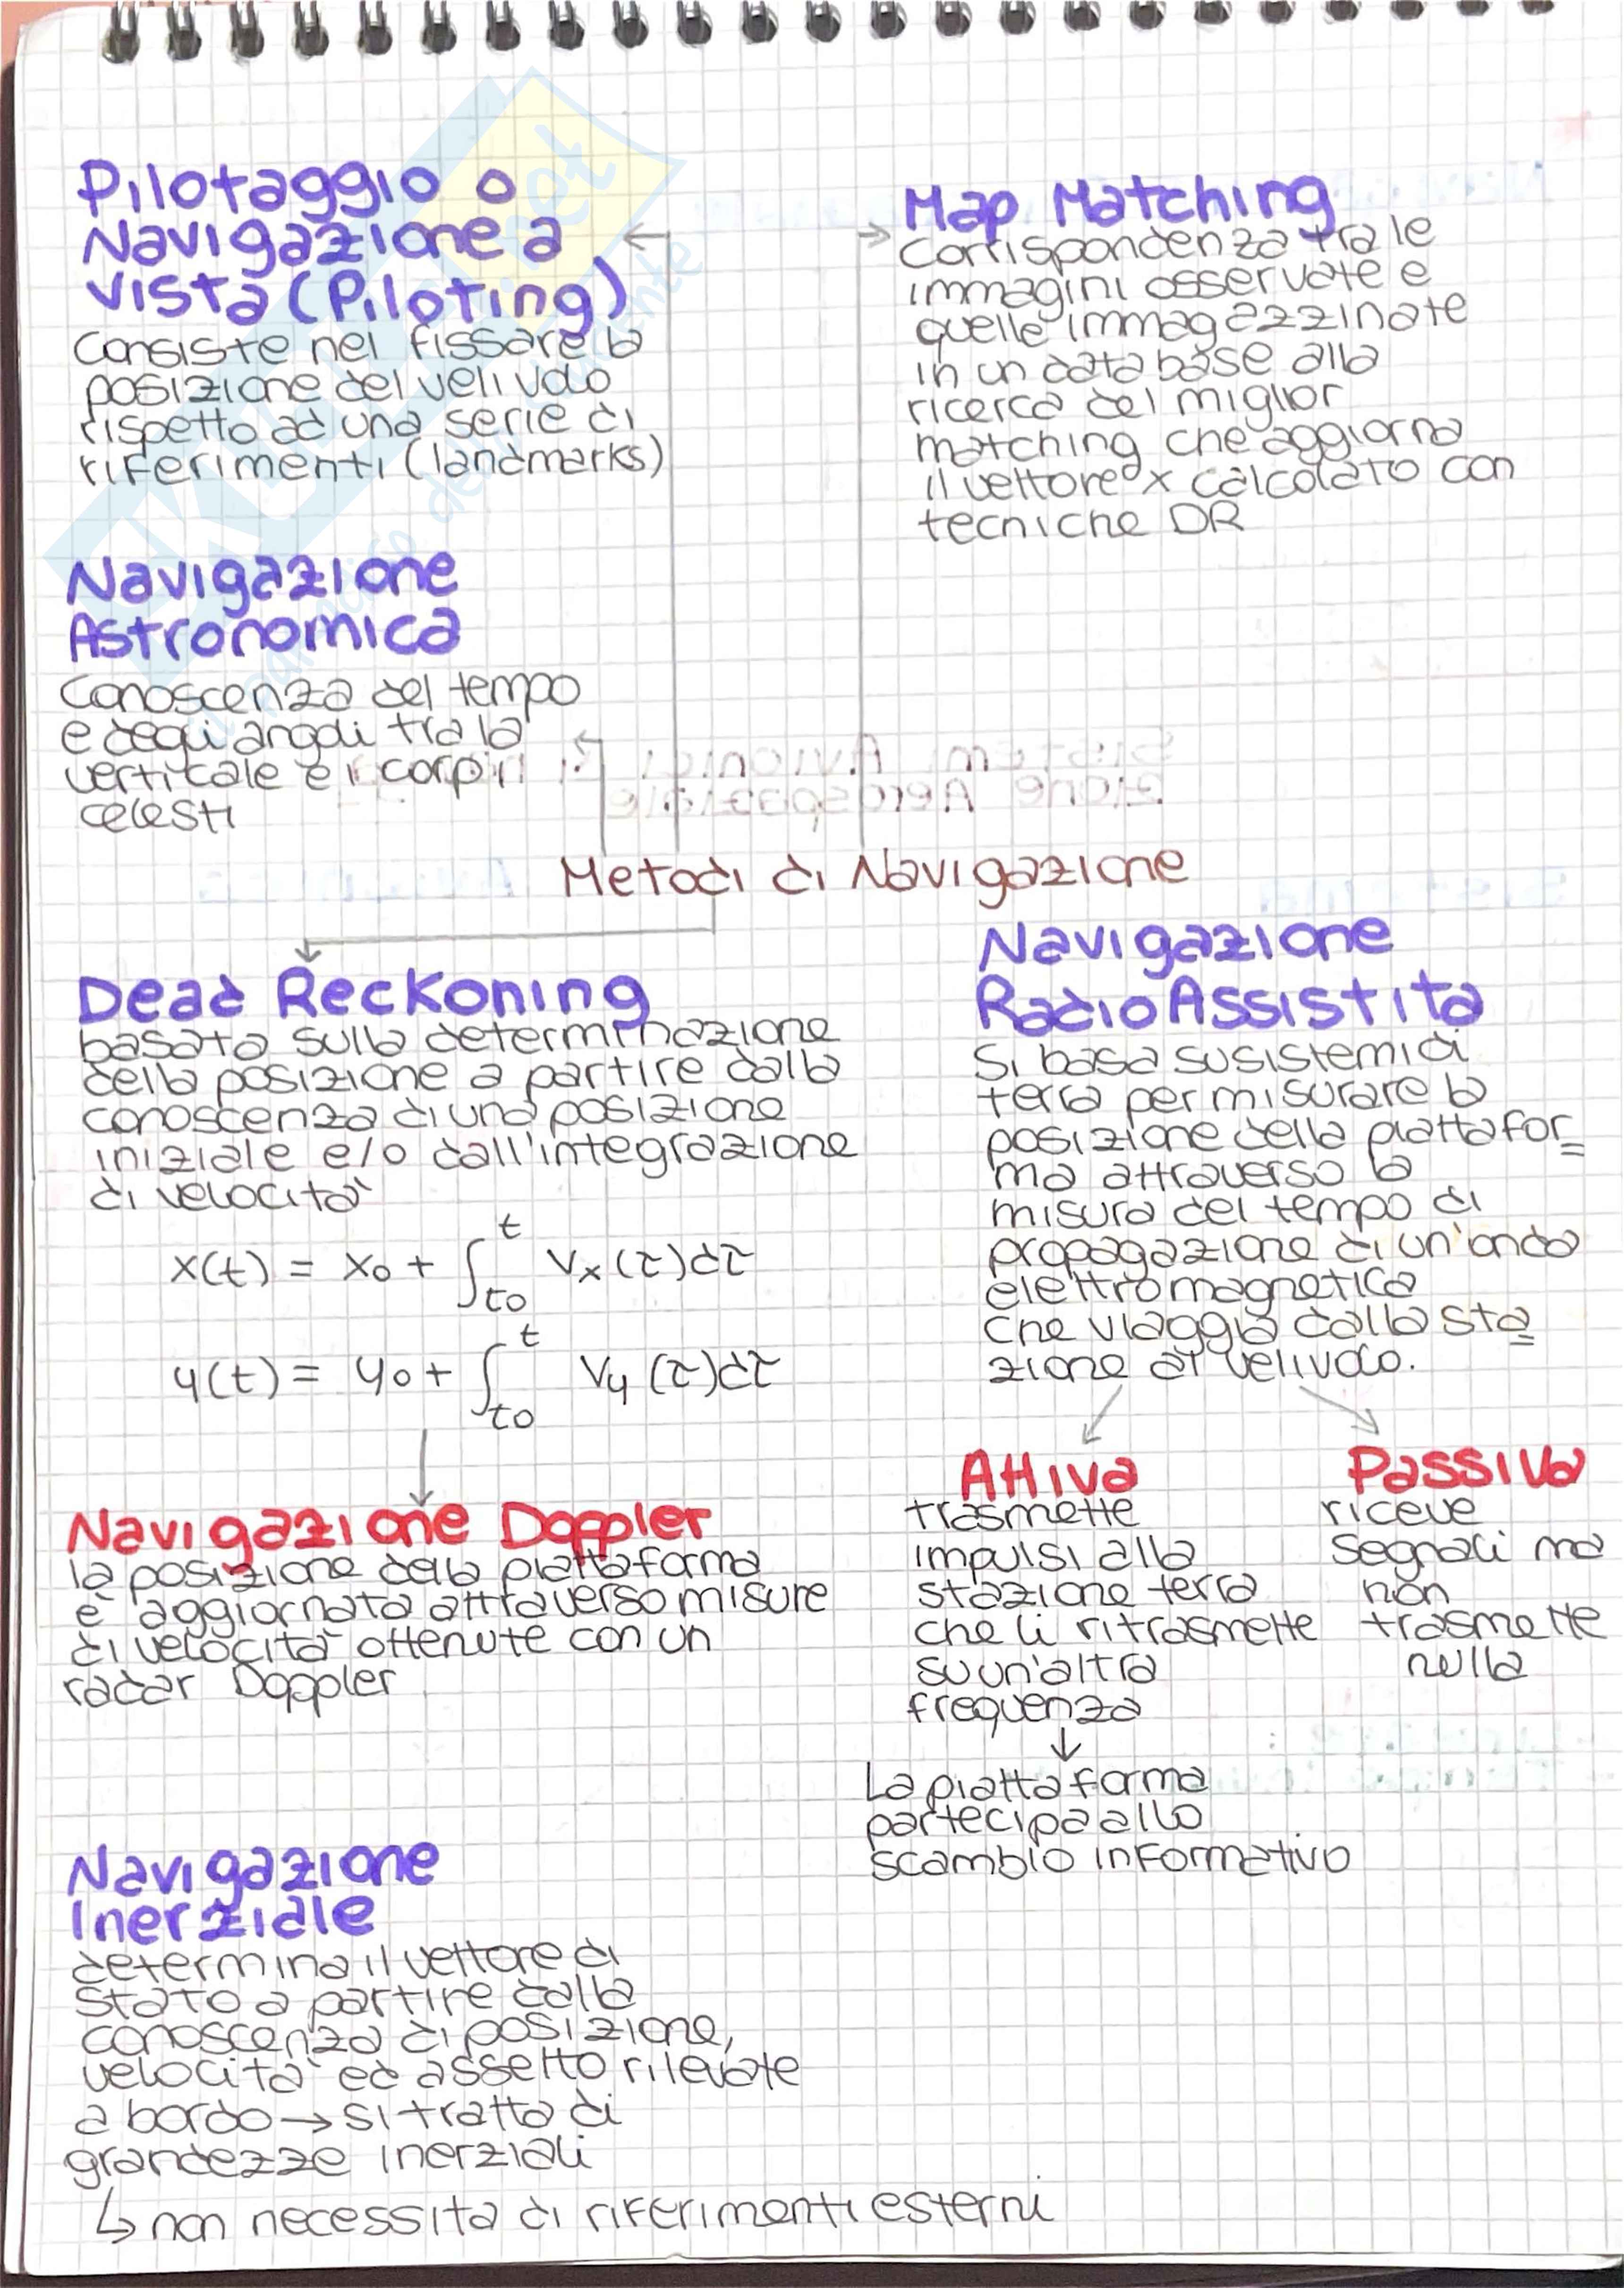 Pilotaggio o
Navigazione a
Vista (Piloting)
Consiste nel fissare la
posizione del velivolo
rispetto ad una serie di
riferimenti (landmarks)
Map Matching
Corrispondenza tra le
immagini osservate e
quelle immagazzinate
in un database alla
ricerca del miglior
matching che aggiorna
il vettore x calcolato con
tecniche DR
Navigazione
Astronomica
Conoscenza del tempo
e degli angoli tra la
verticale e i corpi
celesti
Metodi di Navigazione
Dead Reckoning
basato sulla determinazione
della posizione a partire dalla
conoscenza di una posizione
iniziale e/o dall'integrazione
di velocità
x(t) = x₀ + ∫_{t0}^{t} Vx(τ)dτ
y(t) = y₀ + ∫_{t0}^{t} Vy(τ)dτ
Navigazione Doppler
la posizione della piattaforma
è aggiornata attraverso misure
di velocità ottenute con un
radar Doppler
Navigazione
Inerziale
determina il vettore di
stato a partire dalla
conoscenza di posizione,
velocità ed assetto rilevate
a bordo → si tratta di
grandezze inerziali
↳ non necessita di riferimenti esterni
Navigazione
RadioAssistita
Si basa su sistemi di
terra per misurare la
posizione della piattafor=
ma attraverso la
misura del tempo di
propagazione di un'onda
elettromagnetica
che viaggia dalla sta=
zione al velivolo.
Attiva
trasmette
impulsi alla
stazione terra
che li ritrasmette
su un'altra
frequenza
↓
La piattaforma
partecipa allo
scambio informativo
Passiva
riceve
segnali ma
non
trasmette
nulla